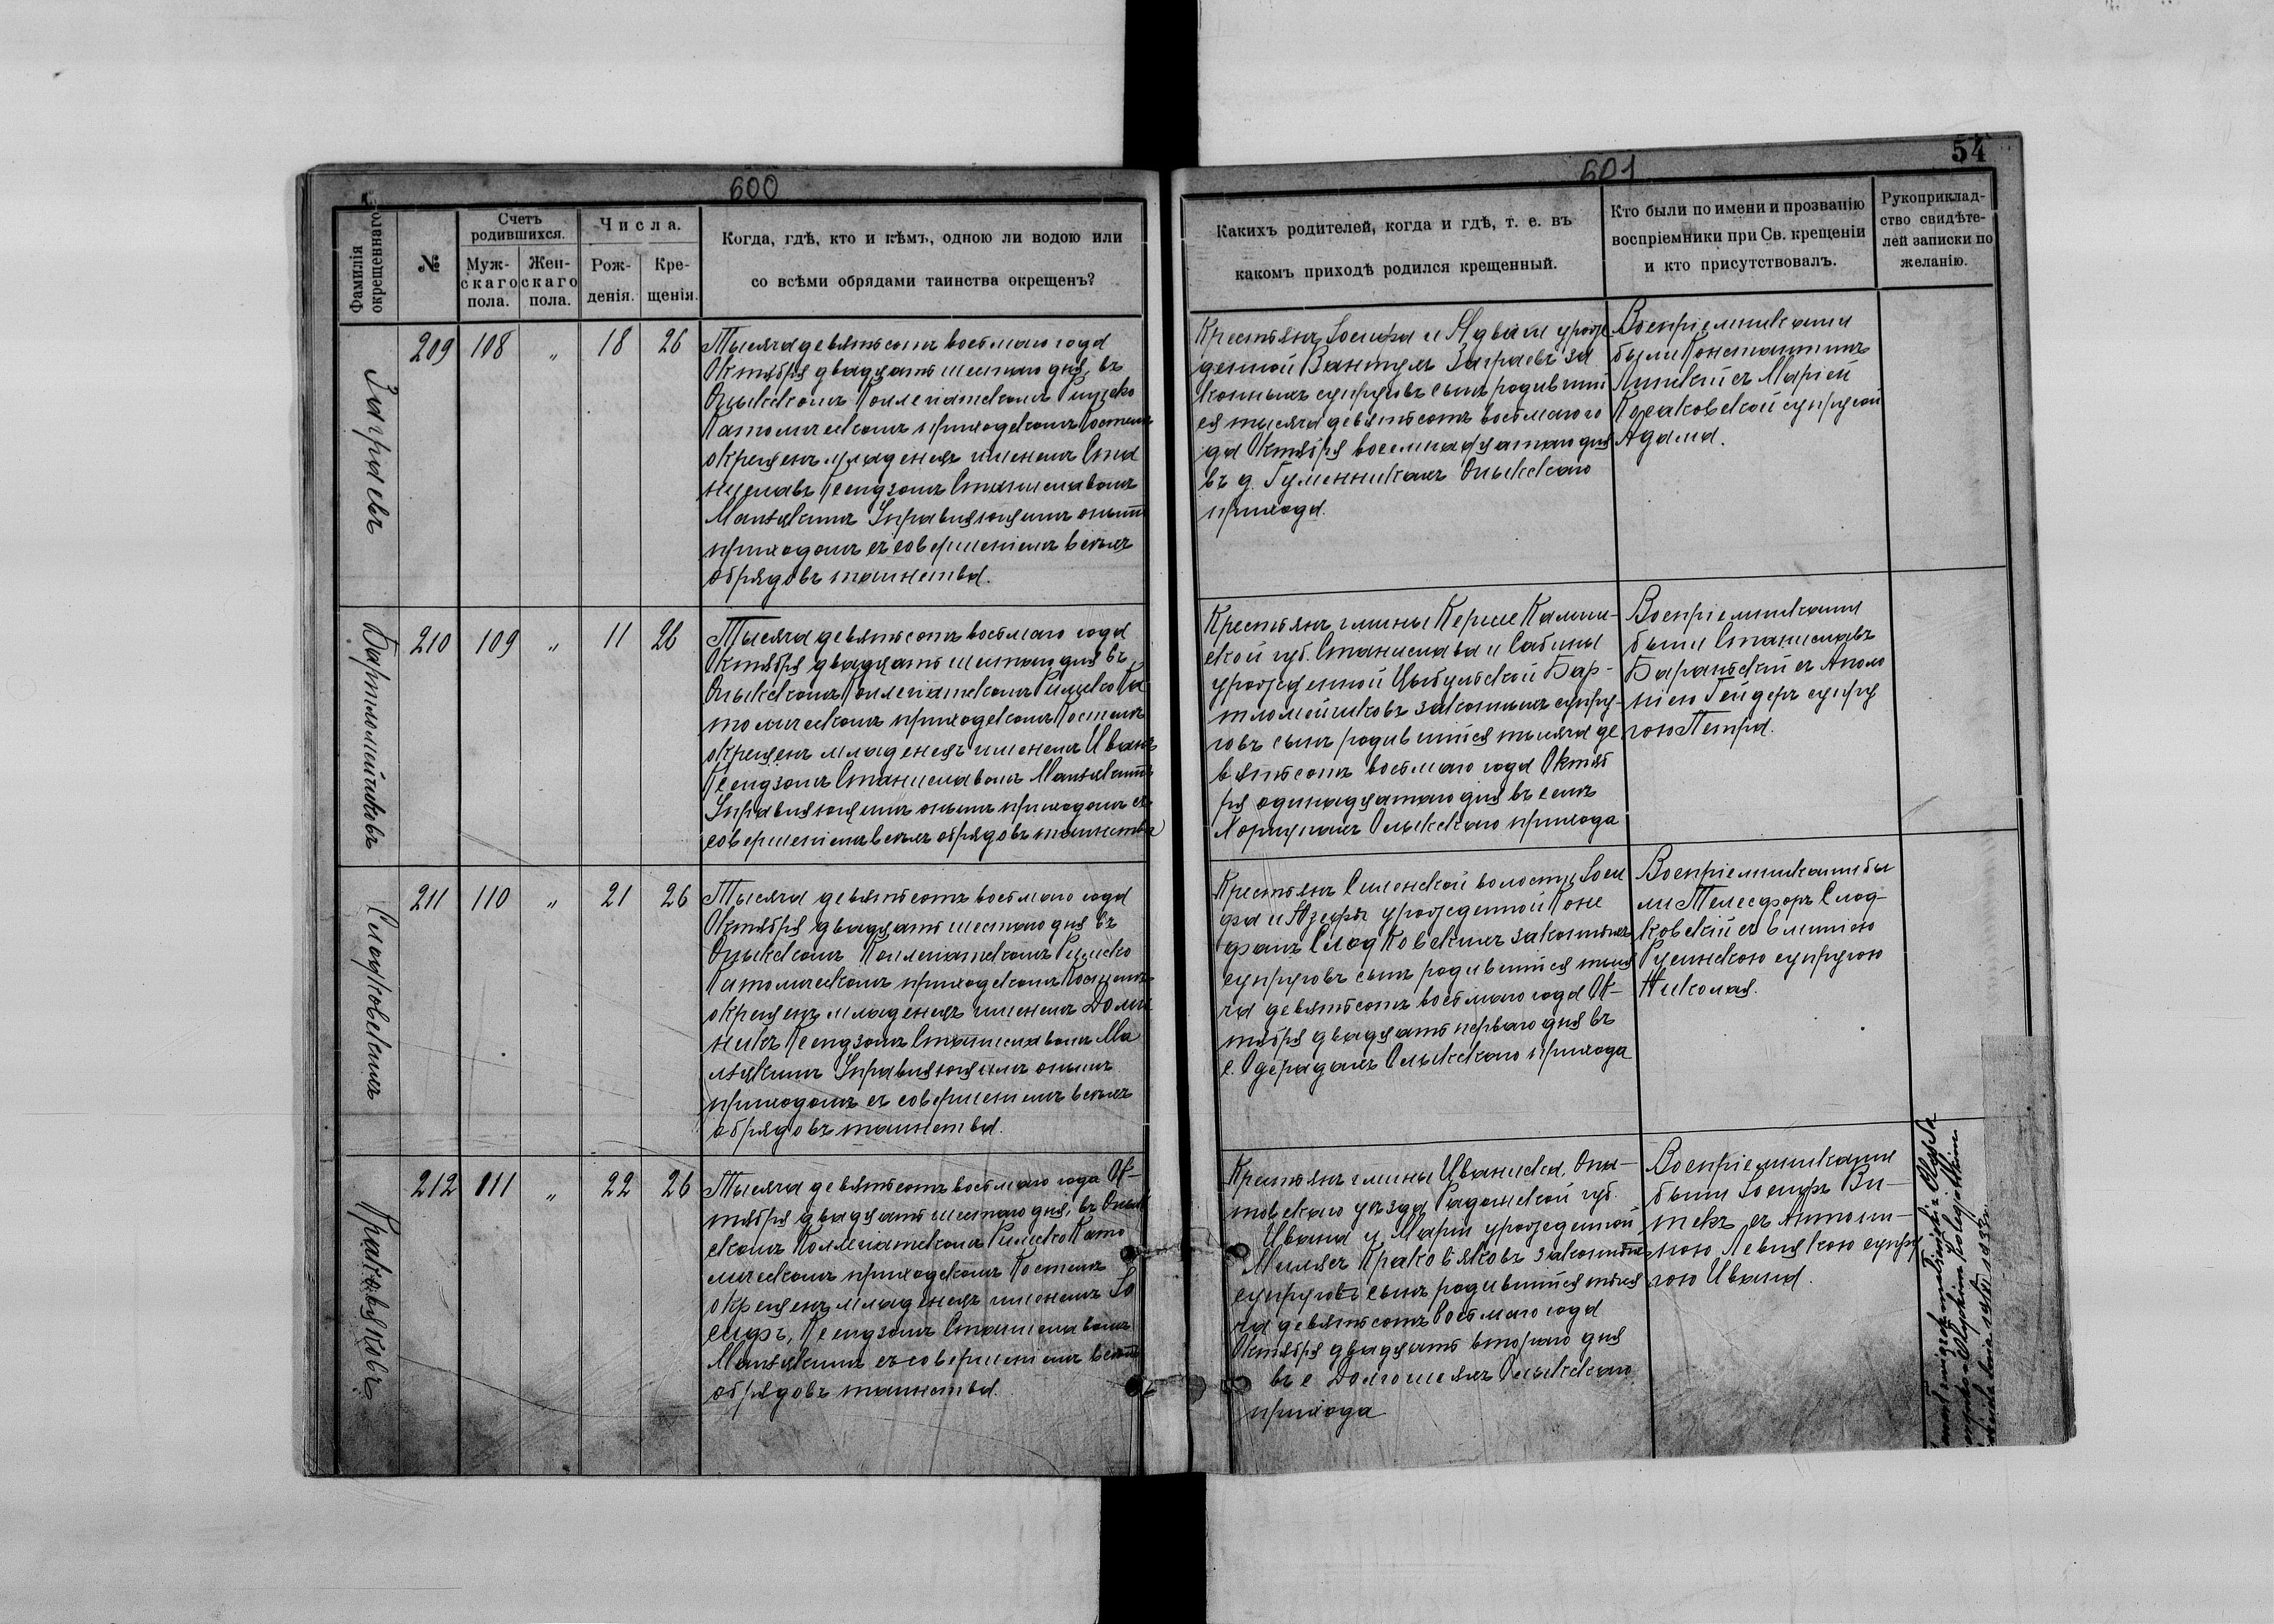 600
Фамилія окрещеннаго.
№
Счетъ родившихся.
Муж-
скаго
пола.
Жен-
скаго
пола.
Числа.
Рож-
денія.
Кре-
щенія.
Когда, гдѣ, кто и кѣмъ, одною ли водою или
со всѣми обрядами таинства окрещенъ?
209 108 " 18 26
Тысяча девятьсотъ восьмаго года
Октября двадцать шестаго дня, въ
Олыкскомъ Коллегіатскомъ Римско
Католическомъ приходскомъ Костелѣ
окрещенъ младенецъ именемъ Ста
ниславъ Ксендзомъ Станиславомъ
Управляющимъ онымъ
приходомъ съ совершеніемъ всѣхъ
обрядовъ таинства.
Бартломейчиковъ
210 109 " 11 26
Тысяча девятьсотъ восьмаго года
Октября двадцать шестаго дня въ
Олыкскомъ Коллегіатскомъ Римско Ка
толическомъ приходскомъ Костелѣ
окрещенъ младенецъ именемъ Иванъ
Ксендзомъ Станиславомъ
Управляющимъ онымъ приходомъ съ
совершеніемъ всѣхъ обрядовъ таинства
Слодковскихъ
211 110 " 21 26
Тысяча девятьсотъ восьмаго года
Октября двадцать шестаго дня въ
Олыкскомъ Коллегіатскомъ Римско
Католическомъ приходскомъ Костелѣ
окрещенъ младенецъ именемъ Доми
никъ Ксендзомъ Станиславомъ
Управляющимъ онымъ
приходомъ съ совершеніемъ всѣхъ
обрядовъ таинства.
Краковяковъ
212 111 " 22 26
Тысяча девятьсотъ восьмаго года Ок-
тября двадцать шестаго дня, въ Олык
скомъ Коллегіатскомъ Римско Като
лическомъ приходскомъ Костелѣ
окрещенъ младенецъ именемъ Іо
сифъ, Ксендзомъ Станиславомъ
съ совершеніемъ всѣхъ
обрядовъ таинства.
601
54
Какихъ родителей, когда и гдѣ, т. е. въ
какомъ приходѣ родился крещенный.
Кто были по имени и прозванію
воспріемники при Св. крещеніи
и кто присутствовалъ.
Рукоприклад-
ство свидѣте-
лей записки по
желанію.
Крестьянъ Іосифа и Ядвиги урож
денной
конныхъ супруговъ сынъ родившій
ся тысяча девятьсотъ восьмаго го
да Октября восемнадцатаго дня
въ д. Гуменникахъ Олыкскаго
прихода.
Воспріемниками
были Константинъ
съ Маріей
супругой
Адама.
Крестьянъ гмины Калиш-
ской губ. Станислава и Сабины
урожденной Цыбульской Бар-
тломейчиковъ законныхъ супру-
говъ сынъ родившійся тысяча де
вятьсотъ восьмаго года Октяб
ря одинадцатаго дня въ селѣ
Олыкскаго прихода
Воспріемниками
были Станиславъ
Баранскій съ Аполо
ніею Гейдеръ супру
гою Петра.
Крестьянъ Силенской волости, Іоси
фа и Юзефы урожденной
Слодковскихъ законныхъ
супруговъ сынъ родившійся тыся
ча девятьсотъ восьмаго года Ок-
тября двадцать перваго дня въ
с. Одерадахъ Олыкскаго прихода
Воспріемниками бы
ли Телесфоръ Слод-
ковскій съ
супругою
Николая.
Крестьянъ гмины Иваниска, Опа-
товскаго уѣзда Радомской губ.
Ивана и Маріи урожденной
Краковяковъ законныхъ
супруговъ сынъ родившійся тыся
ча девятьсотъ восьмаго года
Октября двадцать втораго дня
въ с Долгошеяхъ Олыкскаго
прихода
Воспріемниками
были Іосифъ Ви-
текъ съ Антони-
ною Левицкою супру
гою Ивана.